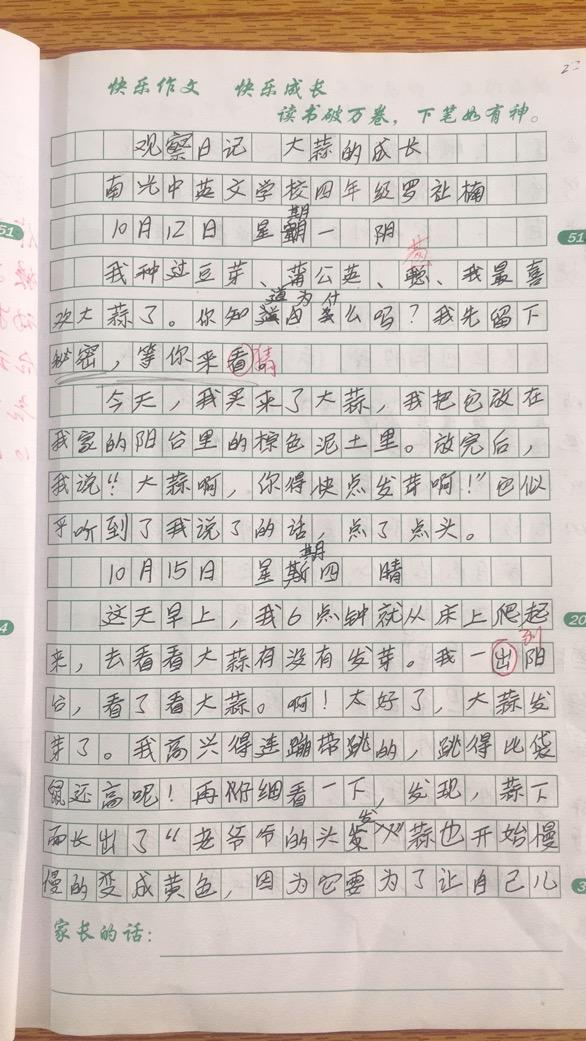 22
快乐作文 快乐成长
读书破万卷，下笔如有神。
观察日记 大蒜的成长
南光中英文学校四年级罗祉楠
期
10月12日 星一 阴
葱
我种过豆芽、蒲公英、聪、我最喜
道为什
欢大蒜了。你知因么吗？我先留下
秘密，等你来看。猜
今天，我买来了大蒜，我把它放在
我家的阳台里的棕色泥土里。放完后，
我说“大蒜啊，你得快点发芽啊！”它似
乎听到了我说了的话，点了点头。
期
10月15日 星斯四 晴
这天早上，我6点钟就从床上爬起
来，去看看大蒜有没有发芽。我一出阳
到
台，看了看大蒜。啊！太好了，大蒜发
芽了。我高兴得连蹦带跳的，跳得比袋
鼠还高呢！再仔细看一下，发现，蒜下
发
面长出了“老爷爷的头”蒜也开始慢
慢的变成黄色，因为它要为了让自己儿
家长的话：
51
51
4
20
3